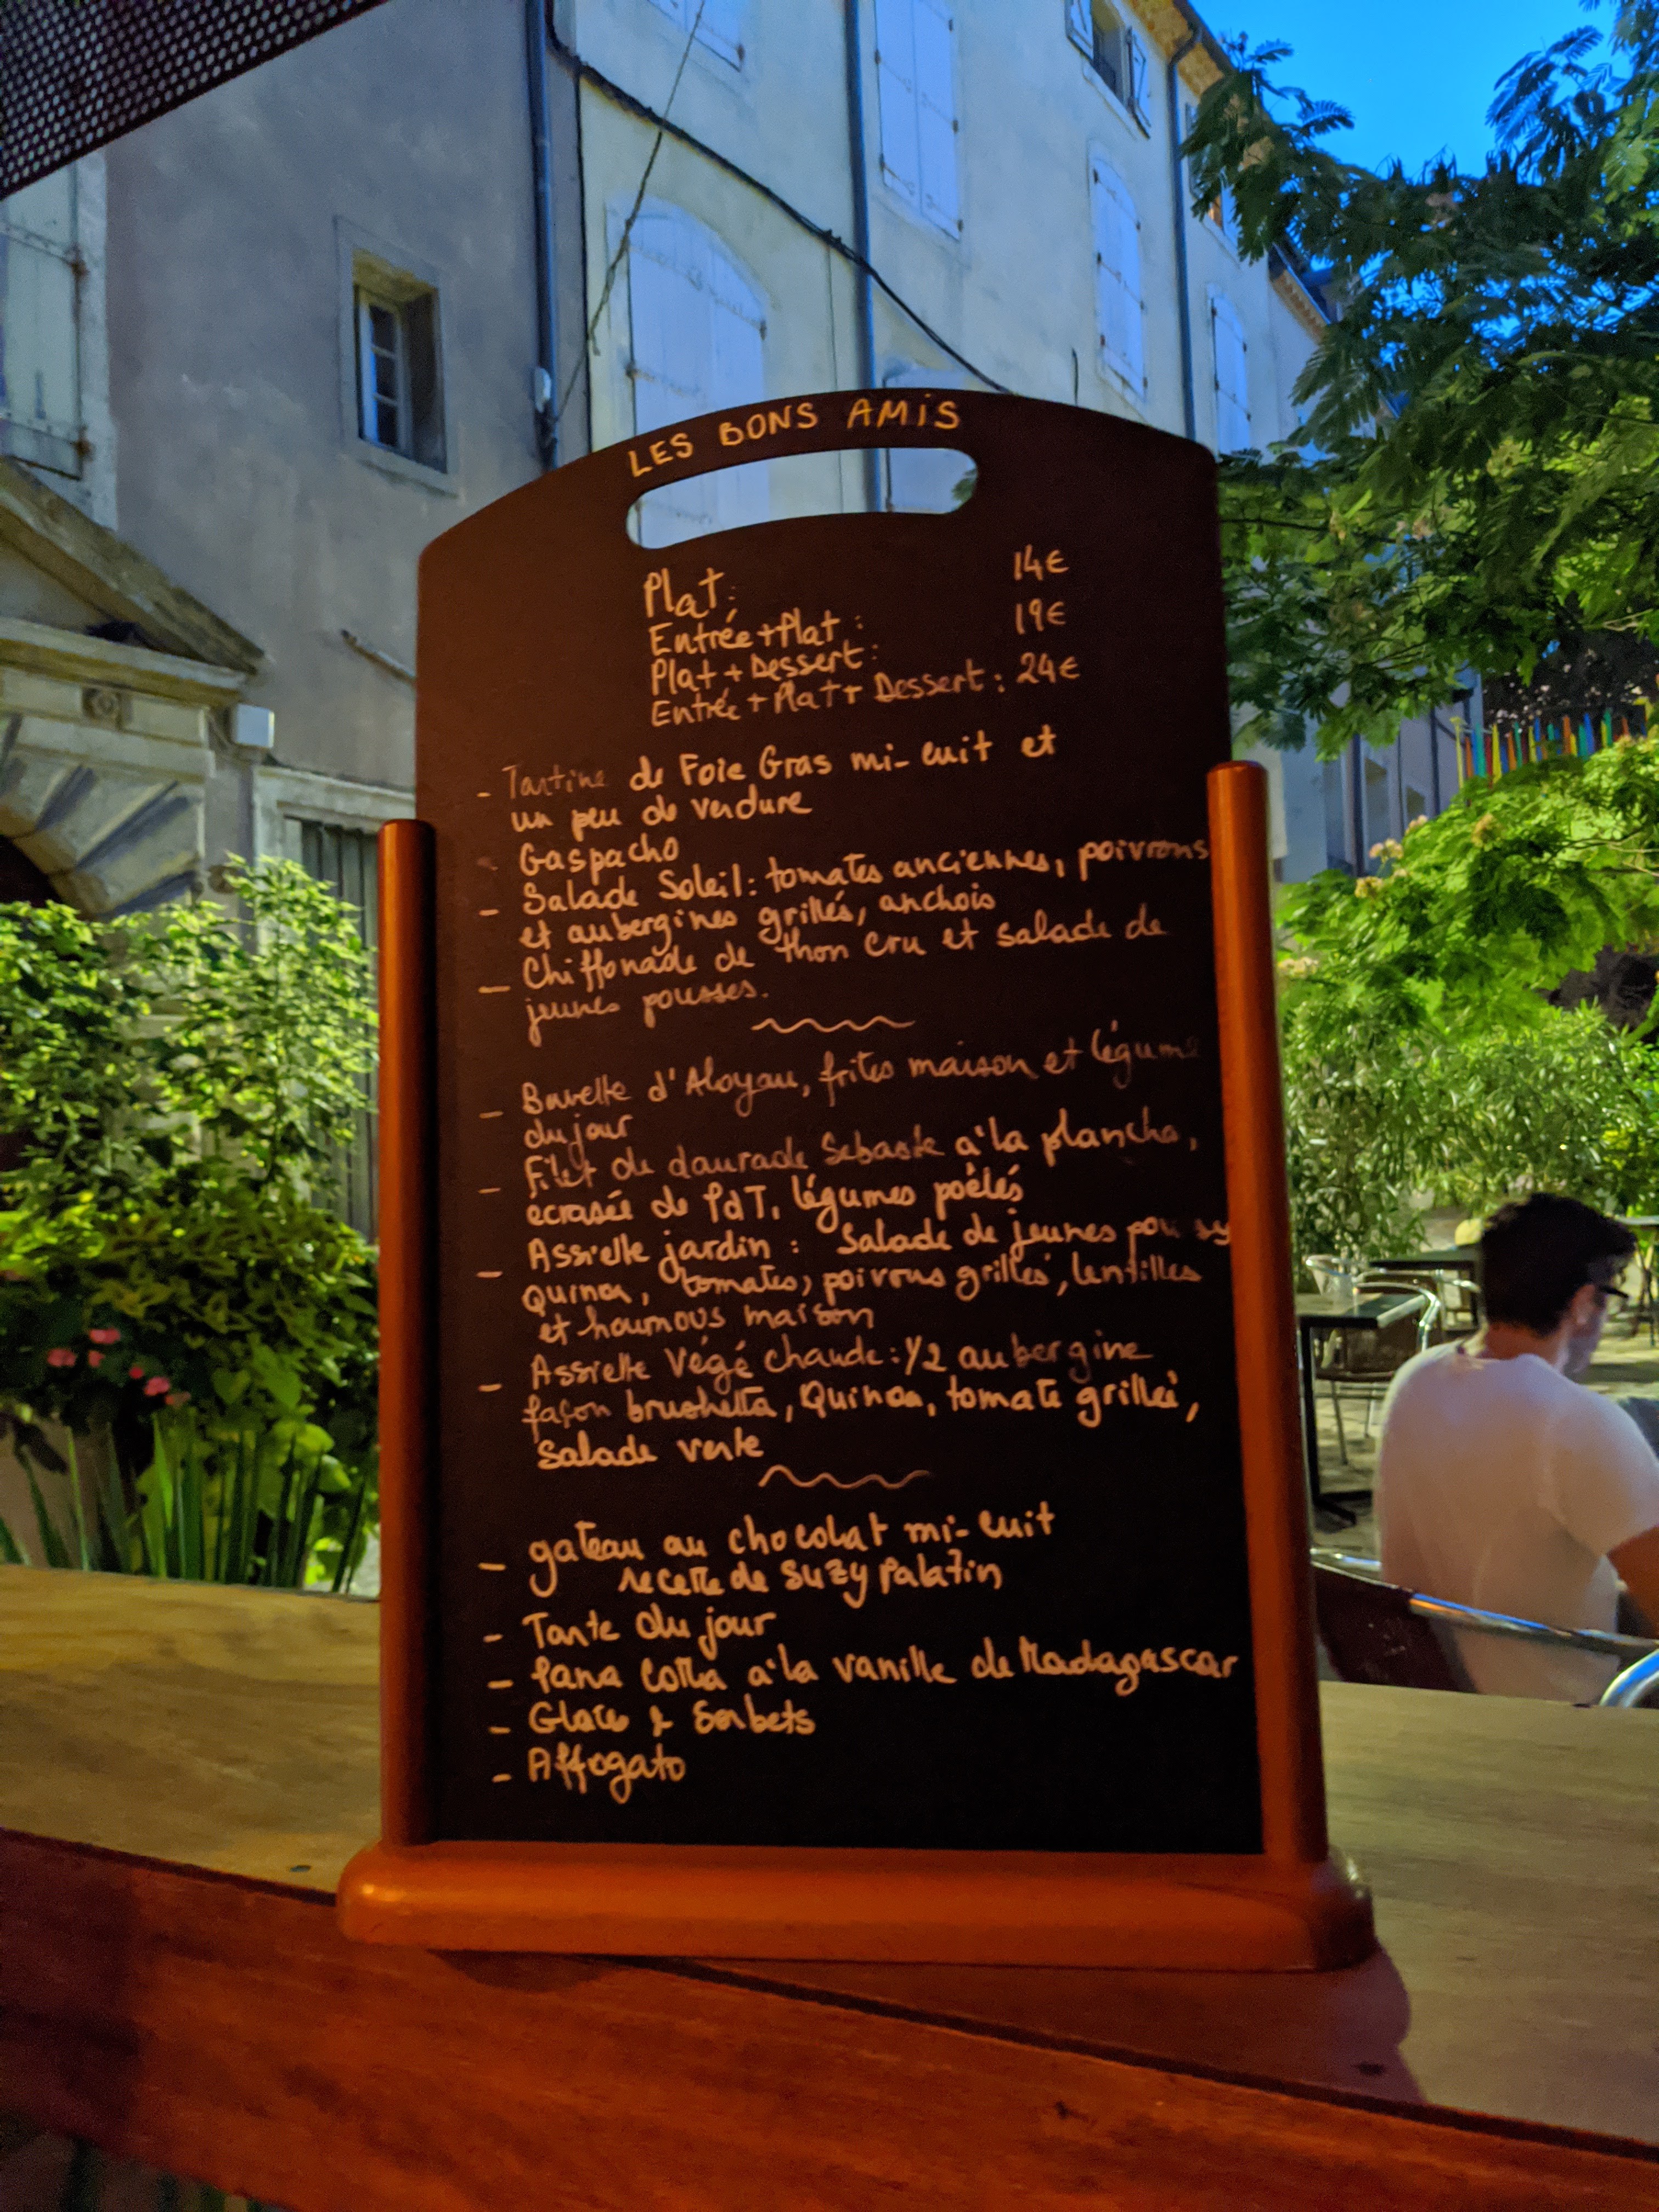 LES BONS AMIS
Plat: 14€
Entrée+Plat : 19€
Plat + Dessert:
Entrée + Plat + Dessert : 24€
- Tartine de Foie Gras mi-cuit et
un peu de verdure
- Gaspacho
- Salade Soleil: tomates anciennes, poivrons
et aubergines grillés, anchois
- Chiffonade de thon cru et salade de
jeunes pousses.
- Bavette d'Aloyau, frites maison et légume
du jour
- Filet de daurade Sebaste à la plancha,
écrasée de PdT, légumes poêlés
- Assiette jardin : Salade de jeunes
Quinoa, tomates, poivrons grillés, lentilles
et houmous maison
- Assiette Végé chaude: 1/2 aubergine
façon brushetta, Quinoa, tomate grillée,
Salade verte
- gateau au chocolat mi-cuit
recette de Suzy Palatin
- Tarte du jour
- Pana Cotta à la vanille de Madagascar
- Glaces & Sorbets
- Affogato